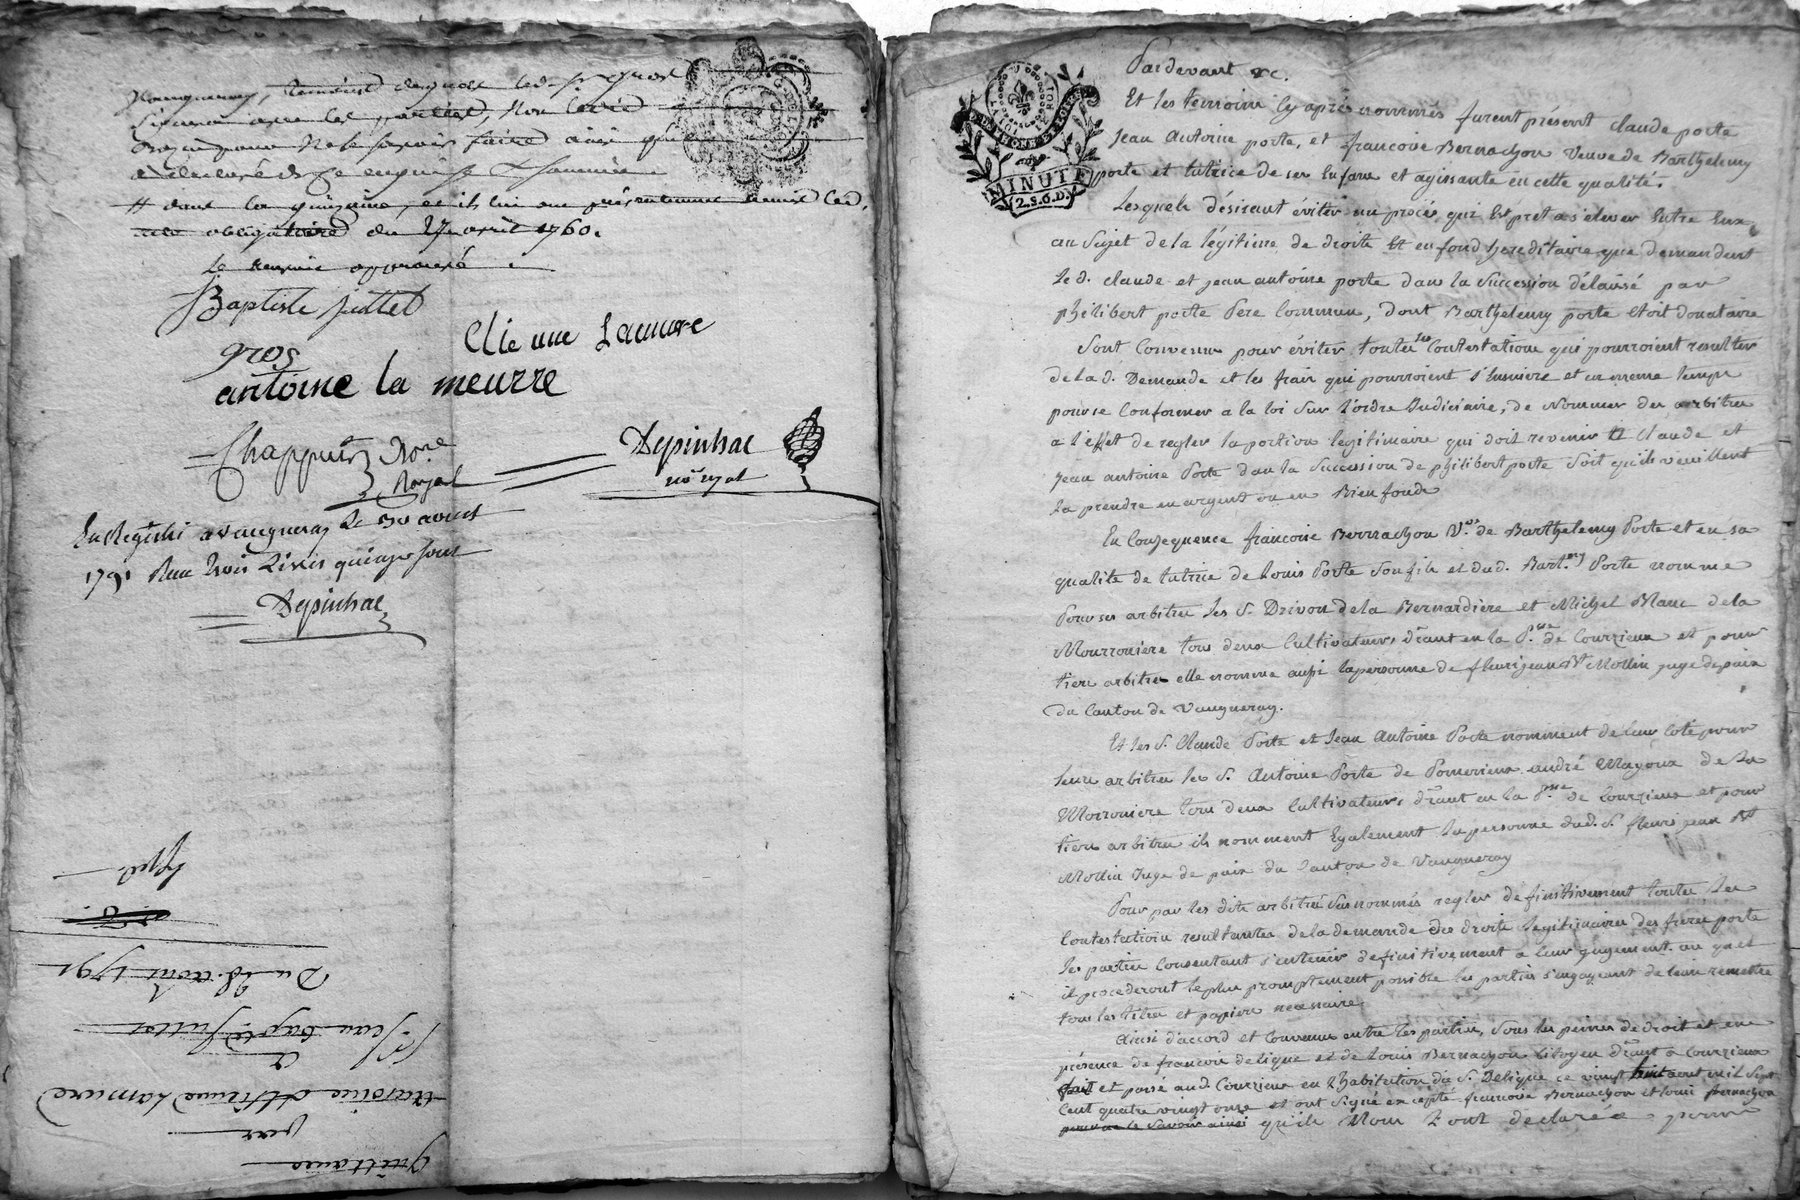 Vaugneray, témoins lesquels led. sr. gros
signera avec les parties, non led.
pour ne le savoir faire ainsi qu'il
a déclaré de ce enquis et sommé.
# dans la quinzaine, et ils lui ont présentement remis led.
obligatoire du 27 avril 1760.
le renvoie approuvé.
Baptiste juttet
gros
Etienne Lamure
antoine la meurre
Chappuis Nore.
Royal
Depinhac
nore. royal
Enregistré a Vaugneray le 30 aoust
1791 Reçu trois Livres quinze sous
Depinhac
Quittance
par
Antoine et Etienne Lamure
a
Sr. Jean bapte. Juttet
Du 28. août 1791
Expé
LA LOI ET LE ROI
MINUTE
2.S.6.D.
Pardevant &c.
Et les temoins cy après nommés furent présent claude porte
Jean Antoine porte, et francoise Bernachon Veuve de Barthelemy
porte et tutrice de ses Enfans et agissante en cette qualité.
Lesquels désirant éviter un procés, qui Est pret a s'elever Entre Eux
au Sujet de la légitime de droite Et en fond hereditaire, que demandent
le d. claude et jean antoine porte dans la Succession délaissé par
philibert porte Pere Commun, dont Barthelemy porte etoit donataire
Sont Convenus pour éviter toutes les Contestations qui pourroient resulter
de la d. Demande et les frais qui pourroient s'Ensuivre et en meme temps
pour se Conformer a la loi Sur l'ordre Judiciaire, de Nommer des arbitres
a l'effet de regler la portion legitimaire qui doit revenir a claude et
jean antoine Porte dans la Succession de philibert porte Soit qu'ils veuillent
la prendre en argent ou en Bien fonds
En Consequence francoise Bernachon Ve. de Barthelemy Porte et en sa
qualité de tutrice de Louis Porte son fils et dud. Bartmy. Porte nomme
Pour ses arbitres les S. Drivon de la Bernardiere et Michel Blanc de la
Mourroniere tous deux Cultivateurs, d̃rant en la Psse. de Courzieux et pour
tiers arbitre elle nomme aussi la personne de fleuri jean Bt Mollin juge de paix
du Canton de Vaugneray.
Et les S. Claude Porte et Jean Antoine Porte nomment de leur Coté pour
leurs arbitres les S. Antoine Porte de Pomerieux andré Mayoux de la
Morroniere tous deux Cultivateurs, d̃rant en la Psse. de Courzieux et pour
tiers arbitre ils nomment Egalement la personne dud. S. fleuri jean Bt
Mollin Juge de paix du Canton de Vaugneray
Pour par les dits arbitres Susnommés regler definitivement toutes les
Contestations resultantes de la demande du droits legitimaires des freres porte
les parties Consentant s'entenir definitivement a leur jugement au quel
il procederont le plus promptement possible les parties s'engageant de leur remettre
tous les titres et papiers necessaire.
Ainsi d'accord et Convenus entre les parties, Sous les peines de droit et en
présence de francois deligne et de Louis Bernachon Citoyen d̃rant a Courzieux
fait et passé aud. Courzieux en l'habitation du S. Deligne ce vingt huit aout mil sept
Cent quatre vingt onze et ont Signé excepté francoise Bernachon et Louis Bernachon
pour ne le Savoir ainsi qu'ils Nous l'ont declarés